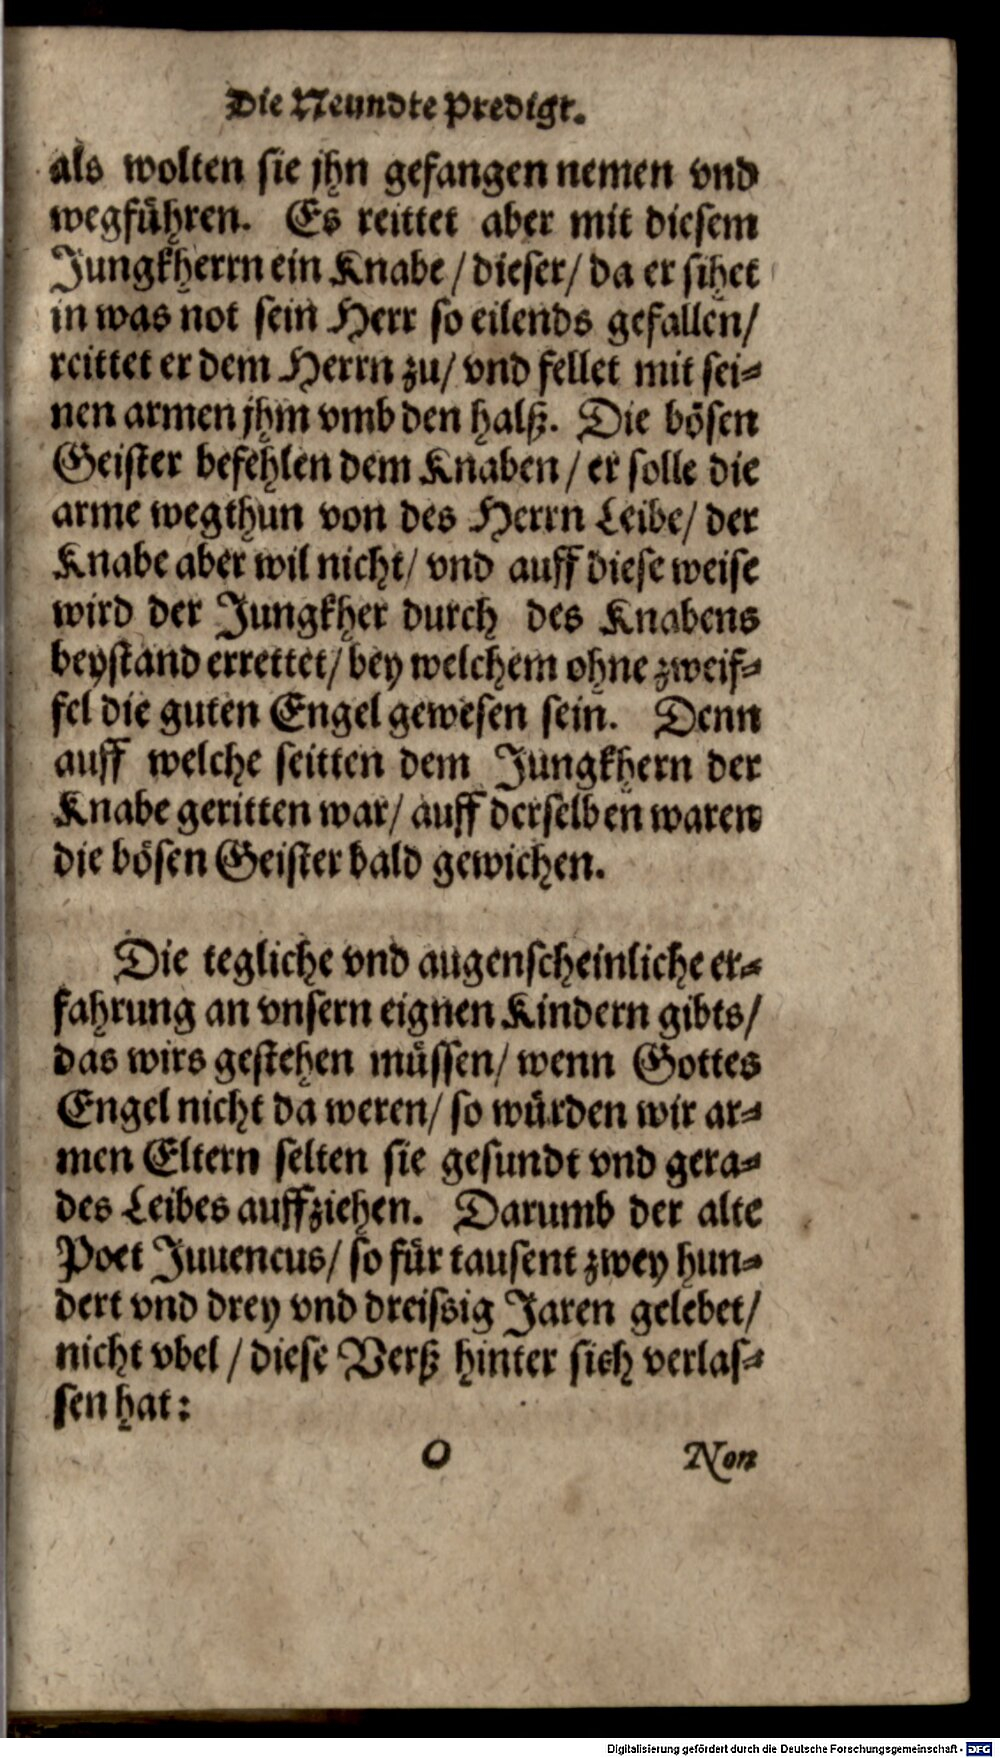 Die Neundte Predigt.
als wolten sie jhn gefangen nemen vnd
wegführen. Es reittet aber mit diesem
Jungkherrn ein Knabe / dieser / da er sihet
in was not sein Herr so eilends gefallen /
reittet er dem Herrn zu / vnd fellet mit sei⸗
nen armen jhm vmb den halß. Die bösen
Geister befehlen dem Knaben / er solle die
arme wegthun von des Herrn Leibe / der
Knabe aber wil nicht / vnd auff diese weise
wird der Jungkher durch des Knabens
beystand errettet / bey welchem ohne zweif⸗
fel die guten Engel gewesen sein. Denn
auff welche seitten dem Jungkhern der
Knabe geritten war / auff derselben waren
die bösen Geister bald gewichen.
Die tegliche vnd augenscheinliche er⸗
fahrung an vnsern eignen Kindern gibts /
das wirs gestehen müssen / wenn Gottes
Engel nicht da weren / so würden wir ar⸗
men Eltern selten sie gesundt vnd gera⸗
des Leibes auffziehen. Darumb der alte
Poet Juuencus / so für tausent zwey hun⸗
dert vnd drey vnd dreissig Jaren gelebet /
nicht vbel / diese Verß hinter sich verlas⸗
sen hat:
O Non
Digitalisierung gefördert durch die Deutsche Forschungsgemeinschaft - DFG